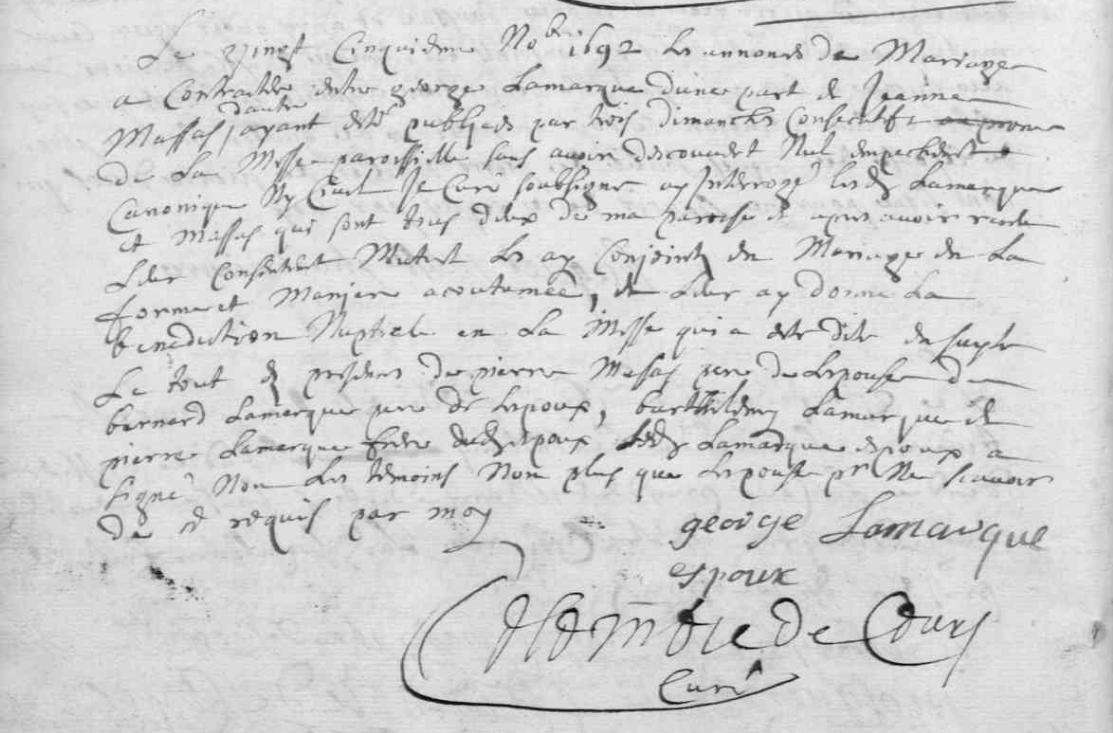 Le vingt cinquieme No^bre 1692 les annonces de Mariage
a Contracter entre george Lamarque dune part et Jeanne
dautre
Massas, ayant esté publiees par trois dimanches consecutifs au prone
de La Messe paroissille sans avoir descouvert Nul empechem^t
Canonique Ny Civil Je Curé soubsigné ay Interrogé lesd Lamarque
et Massas qui sont tous deux de ma paroisse et apres avoir
Leur Consentem^t Mutuel les ay Conjoints en Mariage en La
forme et Maniere acoutumée, et Leur ay donné La
benediction Nuptiale en La Messe qui a esté dite en suyte
Le tout en presence de pierre Massas pere de Lepouse de
bernard Lamarque pere de Lepoux, barthelemy Lamarque et
pierre Lamarque frere dud epoux, Led Lamarque espoux a
signé Non Les témoins Non plus que Lepouse p^r Ne scavoir
de ce requis par moy
george Lamarque
espoux
de Cours
Curé